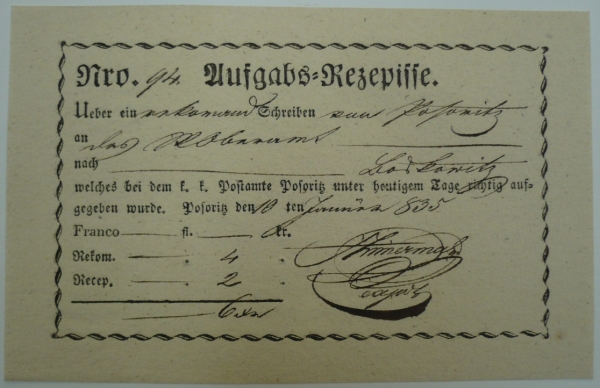 Nro. 94. Aufgabs-Rezepisse.
Ueber ein rekomand Schreiben von Posoritz
an das Oberamt
nach Boskowitz
welches bei dem k. k. Postamte Posoritz unter heutigem Tage richtig auf-
gegeben wurde. Posoritz den 19 ten Januar 835
Franco — fl. — kr.
Rekom. — 4
Recep. — 2
6